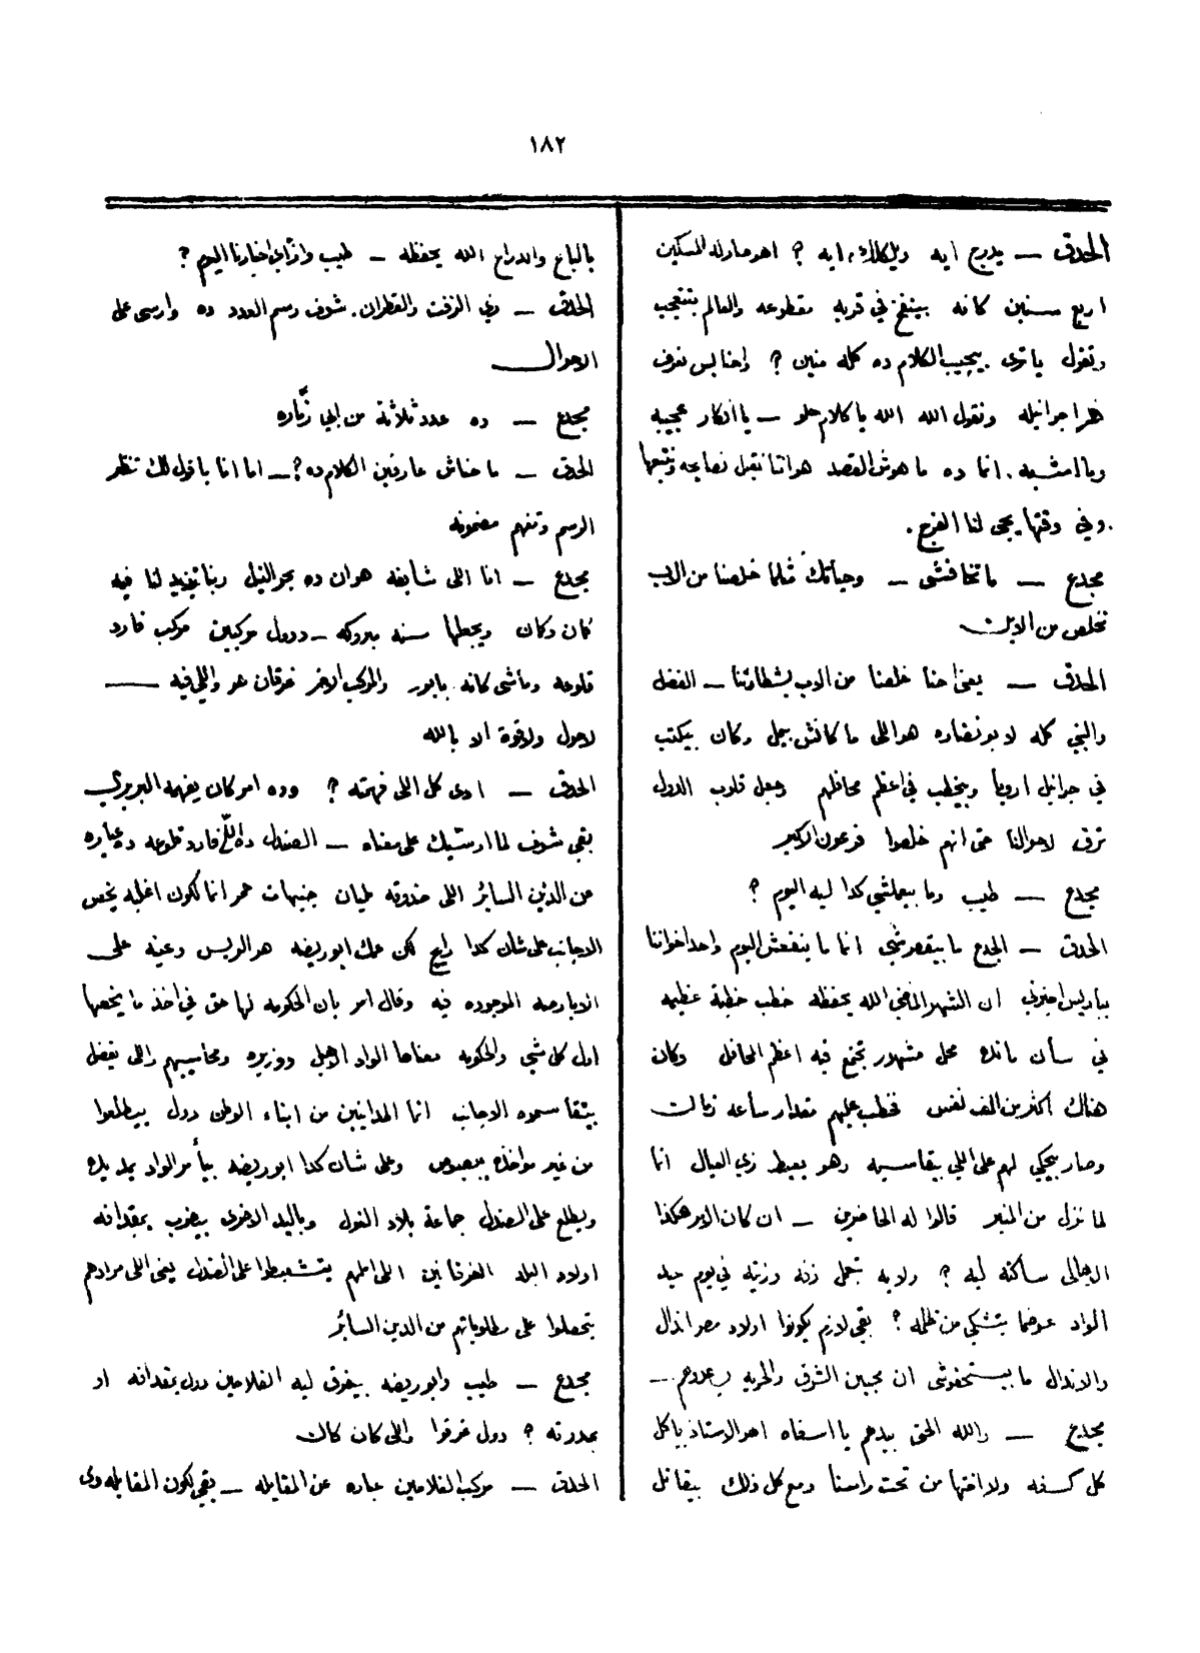 ١٨٢
الحدق — يدرج ايه ويلكلاك ايه ؟ اهو صار له المسكين
اربع سنين كانه بينفخ في قربه مقطوعه والعالم بتتعجب
وتقول ياترى بيجيب الكلام ده كله منين ؟ واحنا بس نعرف
نقرا جرانيله ونقول الله الله يا كلام حلو — يا افكار عجيبه
ويا امشيه . انما ده ما هوش القصد هواننا نقبل نصايحه ونتبعها
وفي وقتها يجى لنا الفرج .
مجدع — ماتخافشى — وحياتك مثلما خلصنا من الاب
نخلص من الابن
الحدق — يعنى احنا خلصنا من الاب بشطارتنا — الفضل
والنبي كله لابو نضاره هو اللى ما كانش يمل وكان بيكتب
في جرانيل اروبا ويخطب في اعظم محافلهم وجعل قلوب الدول
ترق لاحوالنا حتى انهم خلصوا فرعون الاكبر
مجدع — طيب وما بيعملشي كدا ليه اليوم ؟
الحدق — الجدع ما بيقصرشي انما ما ينفعش اليوم واحد اخواننا
بباريس اخبرني ان الشهر الماضي الله يحفظه خطب خطبة عظيمه
في سان مانده محل مشهور تجتمع فيه اعظم المحافل وكان
هناك اكثر من الف نفس فخطب عليهم مقدار ساعه زمان
وصار يحكي لهم على اللي بيقاسيه وهو يعيط زي العيال انما
لما نزل من المنبر قالوا له الحاضرين — ان كان الامر هكذا
الاهالى ساكته ليه ؟ ولايه تجعل زفه وزينه في يوم عيد
الواد عوضا بتشكي من ظلمه ؟ بقى لازم يكونوا اولاد مصر انذال
والاندال ما بيستحقوشى ان محبين الشرق والحريه يساعدوهم —
مجدع — والله الحق بيدهم يا اسفاه اهو الاستاذ ياكل
كل كسفه والاختها من تحت راسنا ومع كل ذلك بيقاتل
بالباع والدراع الله يحفظه — طيب وازاي اخبارنا اليوم ؟
الحدق — زي الزفت والقطران . شوف رسم العدد ده وارسى على
الاحوال
مجدع — ده عدد ثلاثة من ابي زمّاره
الحدق — ما احناش عارفين الكلام ده ؟ — اما انا باقول لك تنظر
الرسم وتفهم مضمونه
مجدع — انا اللى شايفه هوان ده بحر النيل ربنا يزيد لنا فيه
كمان وكان ويجعلها سنه مبروكه — ودول مركبين مركب فارد
قلوعه وماشى كانه بابور والمركب الاخر غرقان هو واللي فيه —
لاحول ولاقوة الا بالله
الحدق — ادى كل اللى فهمته ؟ وده امر كان يفهمه البربري
بقى شوف لما ارسيك على معناه — الصندل ده اللي فارد قلوعه ده عباره
عن الدين السائر اللى صندوقه مليان جنيهات حمر انما لكون اغلبه يخص
الاجانب على شان كدا رايح لكن عمك ابو ريضه هو الريس وعينه على
الابارصه الموجوده فيه وقال امر بان الحكومه لها حق في اخذ ما يخصها
اول كل شي والحكومه معناها الواد الاهبل ووزيره ومحاسيبهم واللى يفضل
يتقاسموه الاجانب انما المداينين من ابناء الوطن دول بيطلعوا
من غير مواخذه ببعبوص وعلى شان كدا ابو ريضه بيأمر الواد يمد يده
ويطلع على الصندل جماعة بلاد الغول وباليد الاخرى بيضرب بمقدافه
اولاد البلد الغرقانين اللى املهم يتشعبطوا على الصندل يعنى اللى مرادهم
يتحصلوا على مطلوباتهم من الدين السائر
مجدع — طيب وابو ريضه بيغرق ليه الفلاحين دول بمقدافه او
بمدرته ؟ دول غرقوا واللى كان كان
الحدق — مركب الفلاحين عباره عن المقابله — بقى لكون المقابله دى